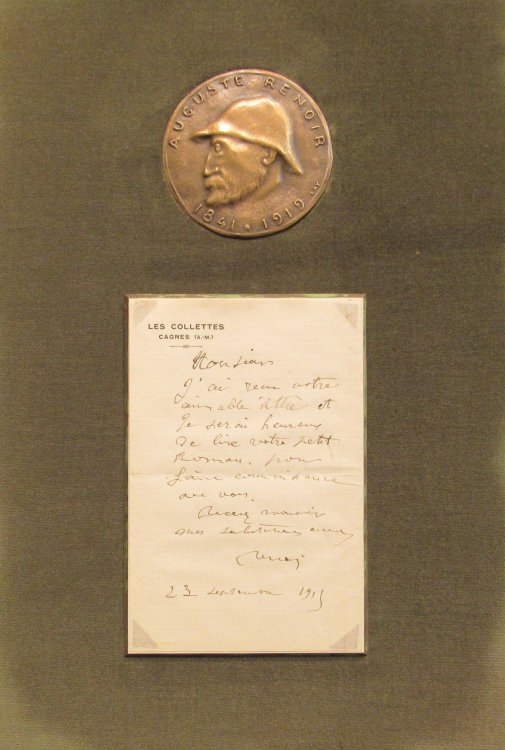 AUGUSTE RENOIR
1841 • 1919
LES COLLETTES
CAGNES (A.-M.)
Monsieur
J'ai reçu votre
aimable lettre et
je serai heureux
de lire votre petit
Roman, pour
faire connaissance
avec vous.
Recevez monsieur
mes salutations
Renoir
23 septembre 1915